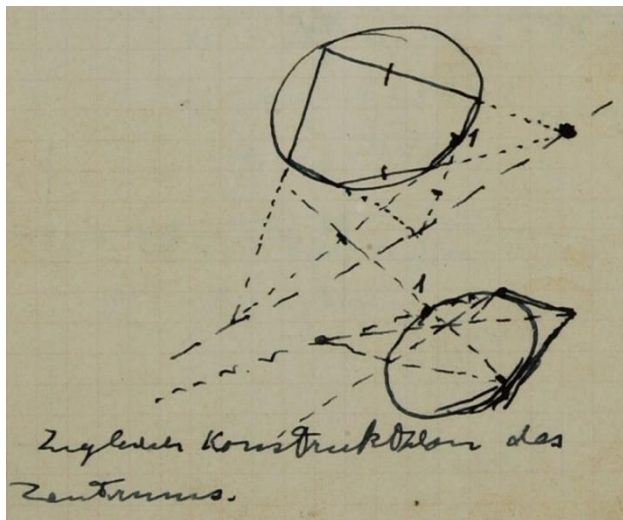 1
1
Zugleich Konstruktion des
Zentrums.